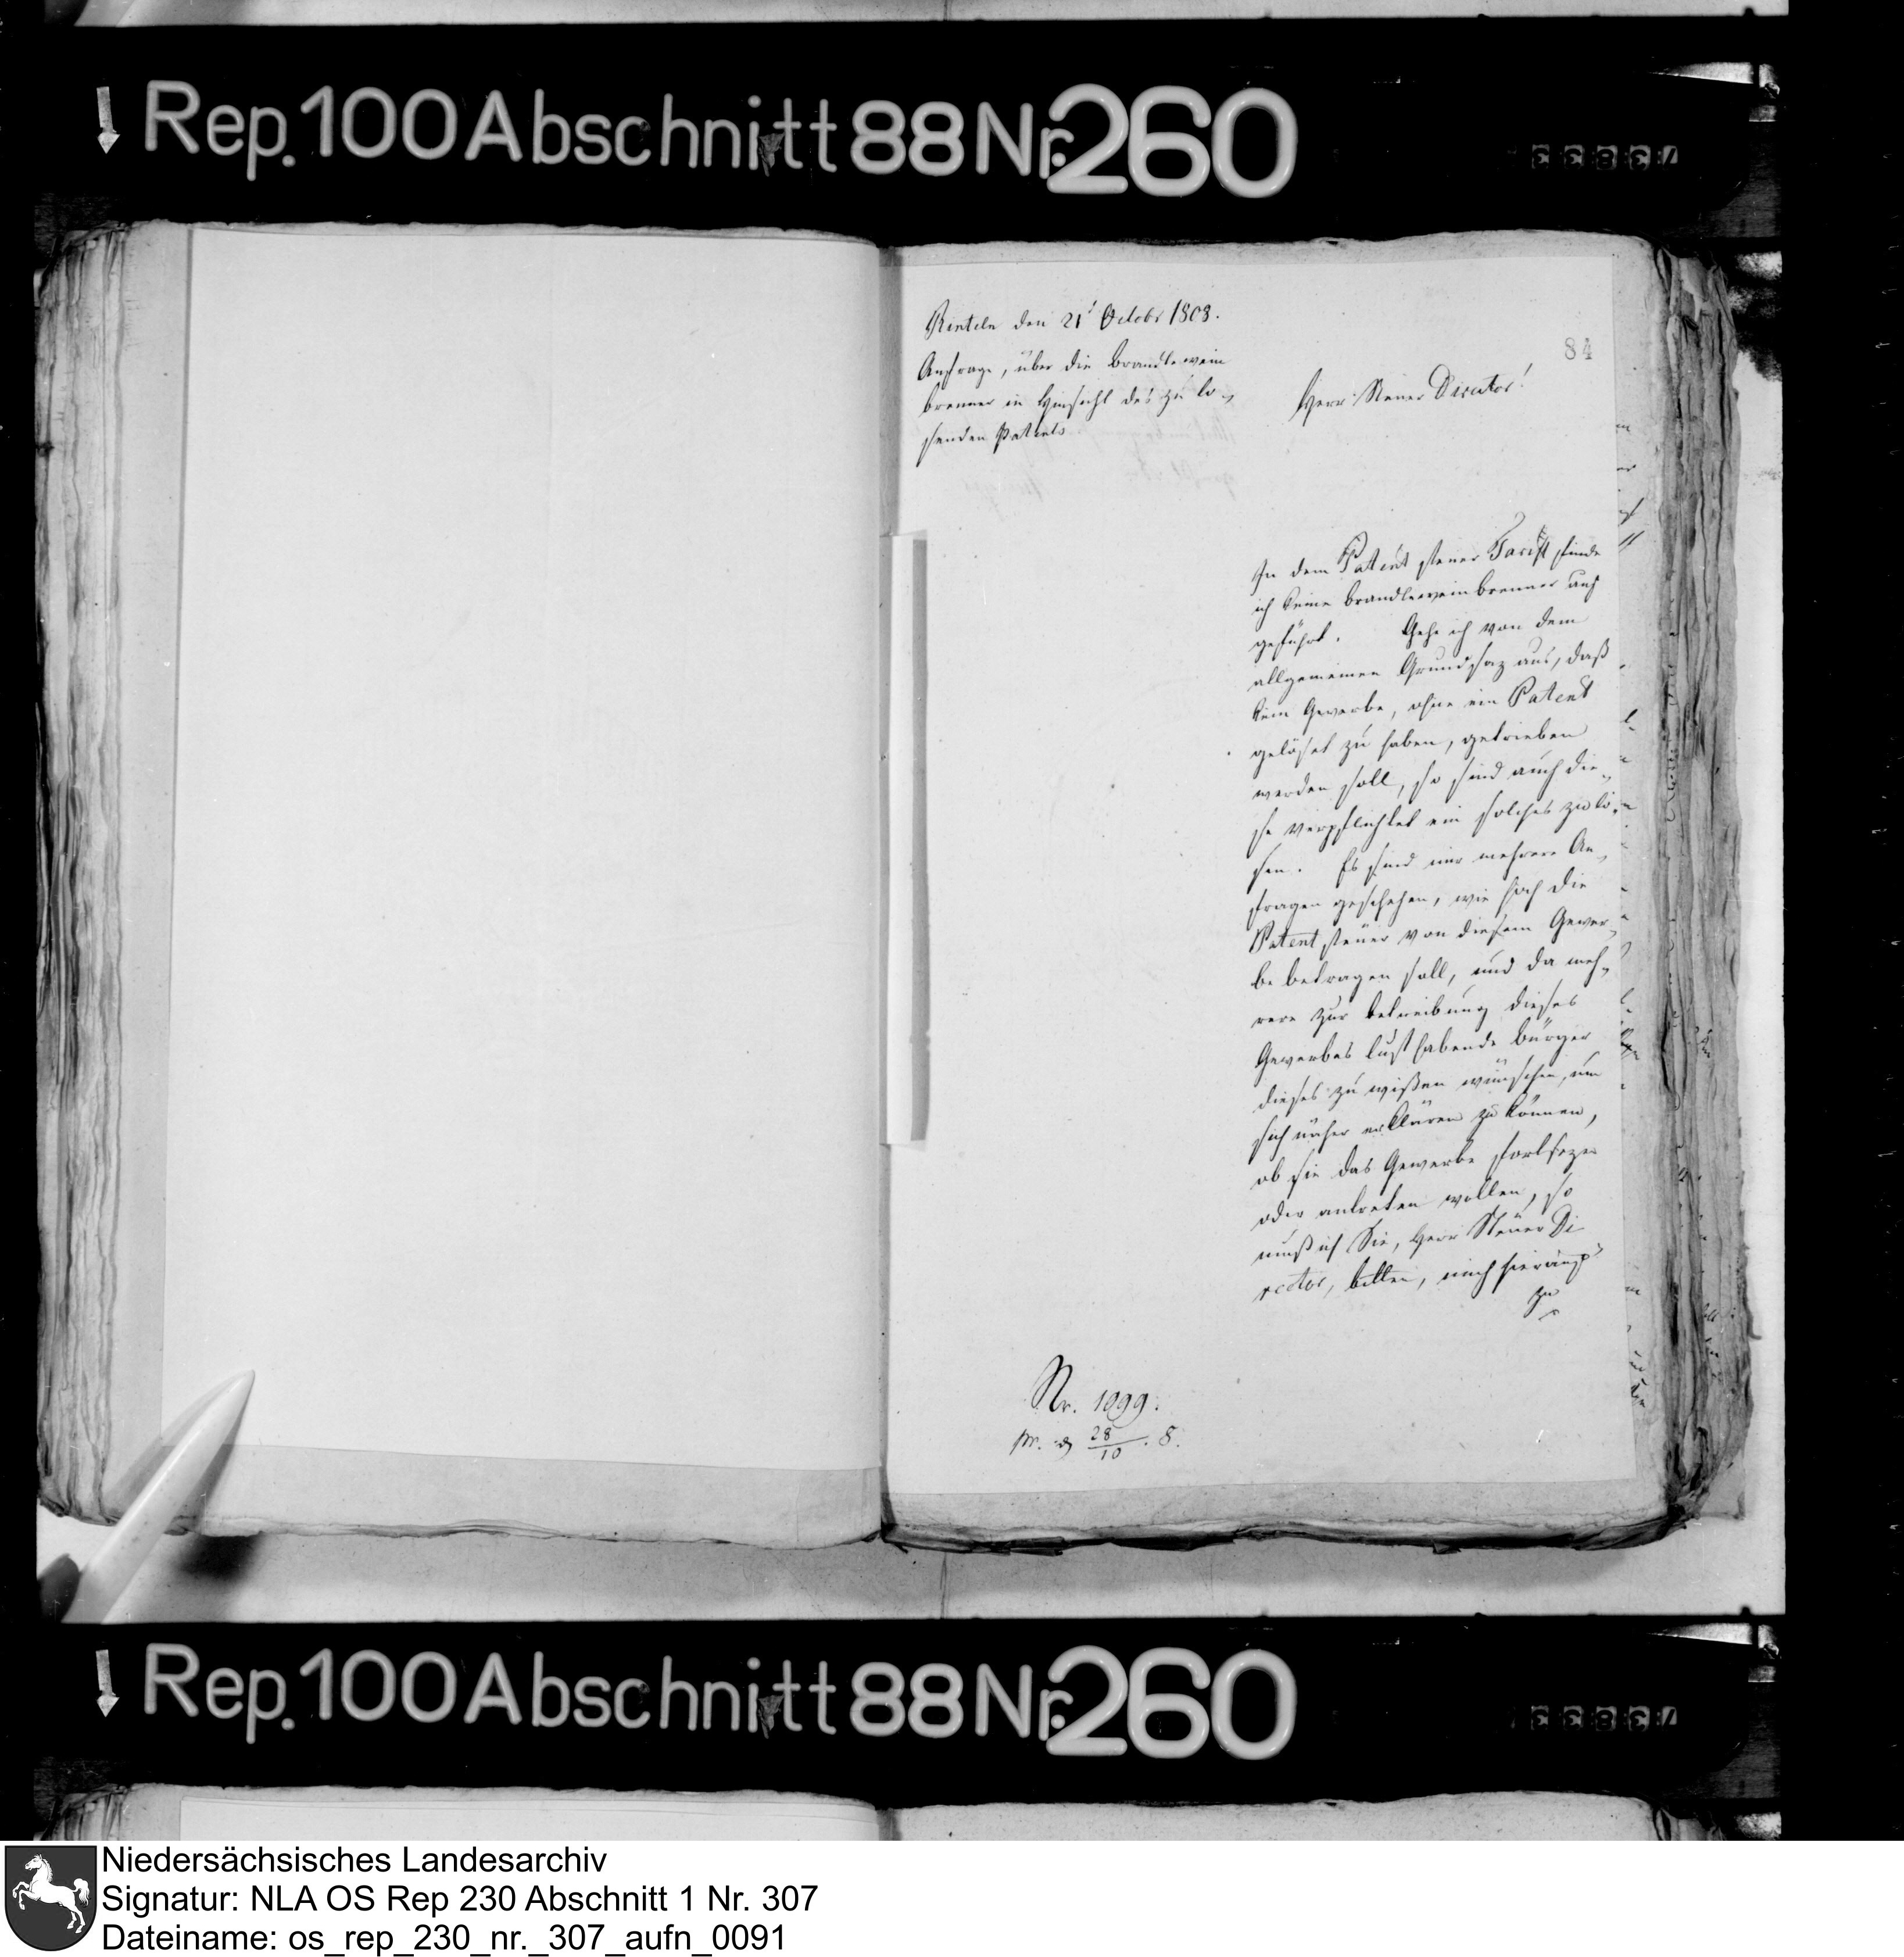 Rep. 100 Abschnitt 88 Nr. 260
Rinteln den 21t Octobr 1808.
Anfrage, über die Brandtewein
brenner in Hinsicht des zu lö-
senden Patents
84
Herr Steuer Director!
In dem Patent steuer Tariff finde
ich keine Brandtewein brenner auf
geführt. Gehe ich von dem
allgemeinen Grundsaz aus, daß
kein Gewerbe, ohne ein Patent
gelöset zu haben, getrieben
werden soll, so sind auch die-
se verpflichtet ein solches zu lö-
sen. Es sind mir mehrere An-
fragen geschehen, wie hoch die
Patent steuer von diesem Gewer-
be betragen soll, und da meh-
rere zur Betreibung dieses
Gewerbes lust habende Bürger
dieses zu wißen wünschen, um
sich näher erklären zu können,
ob sie das Gewerbe fortsezen
oder antreten wollen, so
muß ich Sie, Herr Steuer Di-
rector, bitten, mich hierauf
zu
Nr. 1099.
pr. d 28/10. 8.
Rep. 100 Abschnitt 88 Nr. 260
Niedersächsisches Landesarchiv
Signatur: NLA OS Rep 230 Abschnitt 1 Nr. 307
Dateiname: os_rep_230_nr._307_aufn_0091